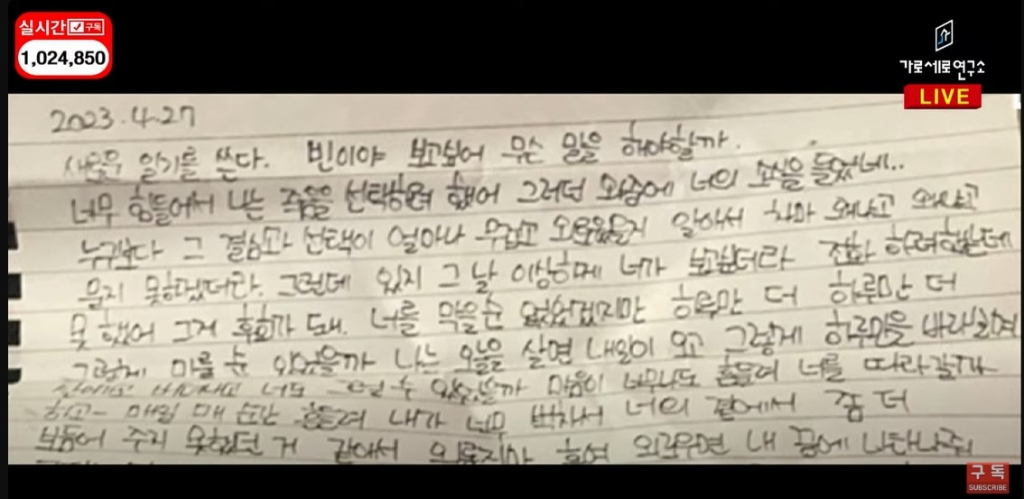 실시간 구독
1,024,850
가로세로연구소
LIVE
2023.4.27
새벽 일기를 쓴다. 빈이야 보고싶어 무슨 말을 해야할까.
너무 힘들어서 나는 죽음을 선택하려 했어 그러던 와중에 너의 소식을 들었네..
누구보다 그 결심과 선택이 얼마나 무겁고 외로웠을지 알아서 차마 왜냐고 왜냐고
묻지 못하겠더라. 그런데 있지 그 날 이상하게 너가 보고싶더라 전화 하려했는데
못 했어 그게 후회가 돼. 너를 막을순 없었겠지만 하루만 더 하루만 더
그렇게 미룰 순 있었을까 나는 오늘을 살면 내일이 오고 그렇게 하루만을 바라
너도 수 있었을까 마음이 너무나도 흔들려 너를 따라갈까
하고- 매일 매 순간 흔들려 내가 너무 벅차서 너의 곁에서 좀 더
보듬어 주지 못했던 거 같아서 외로우면 내 꿈에 나타나줘
구독
SUBSCRIBE